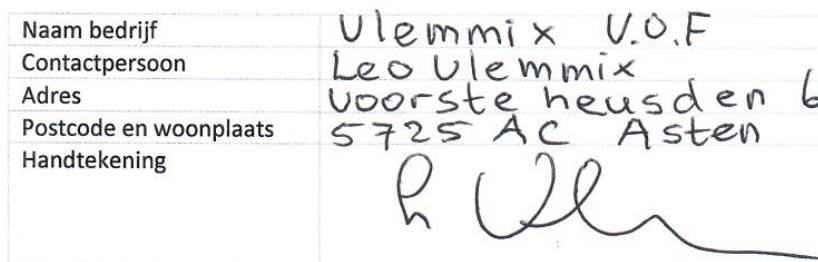 Naam bedrijf Vlemmix V.O.F
Contactpersoon Leo Vlemmix
Adres Voorste heusden 6
Postcode en woonplaats 5725 AC Asten
Handtekening